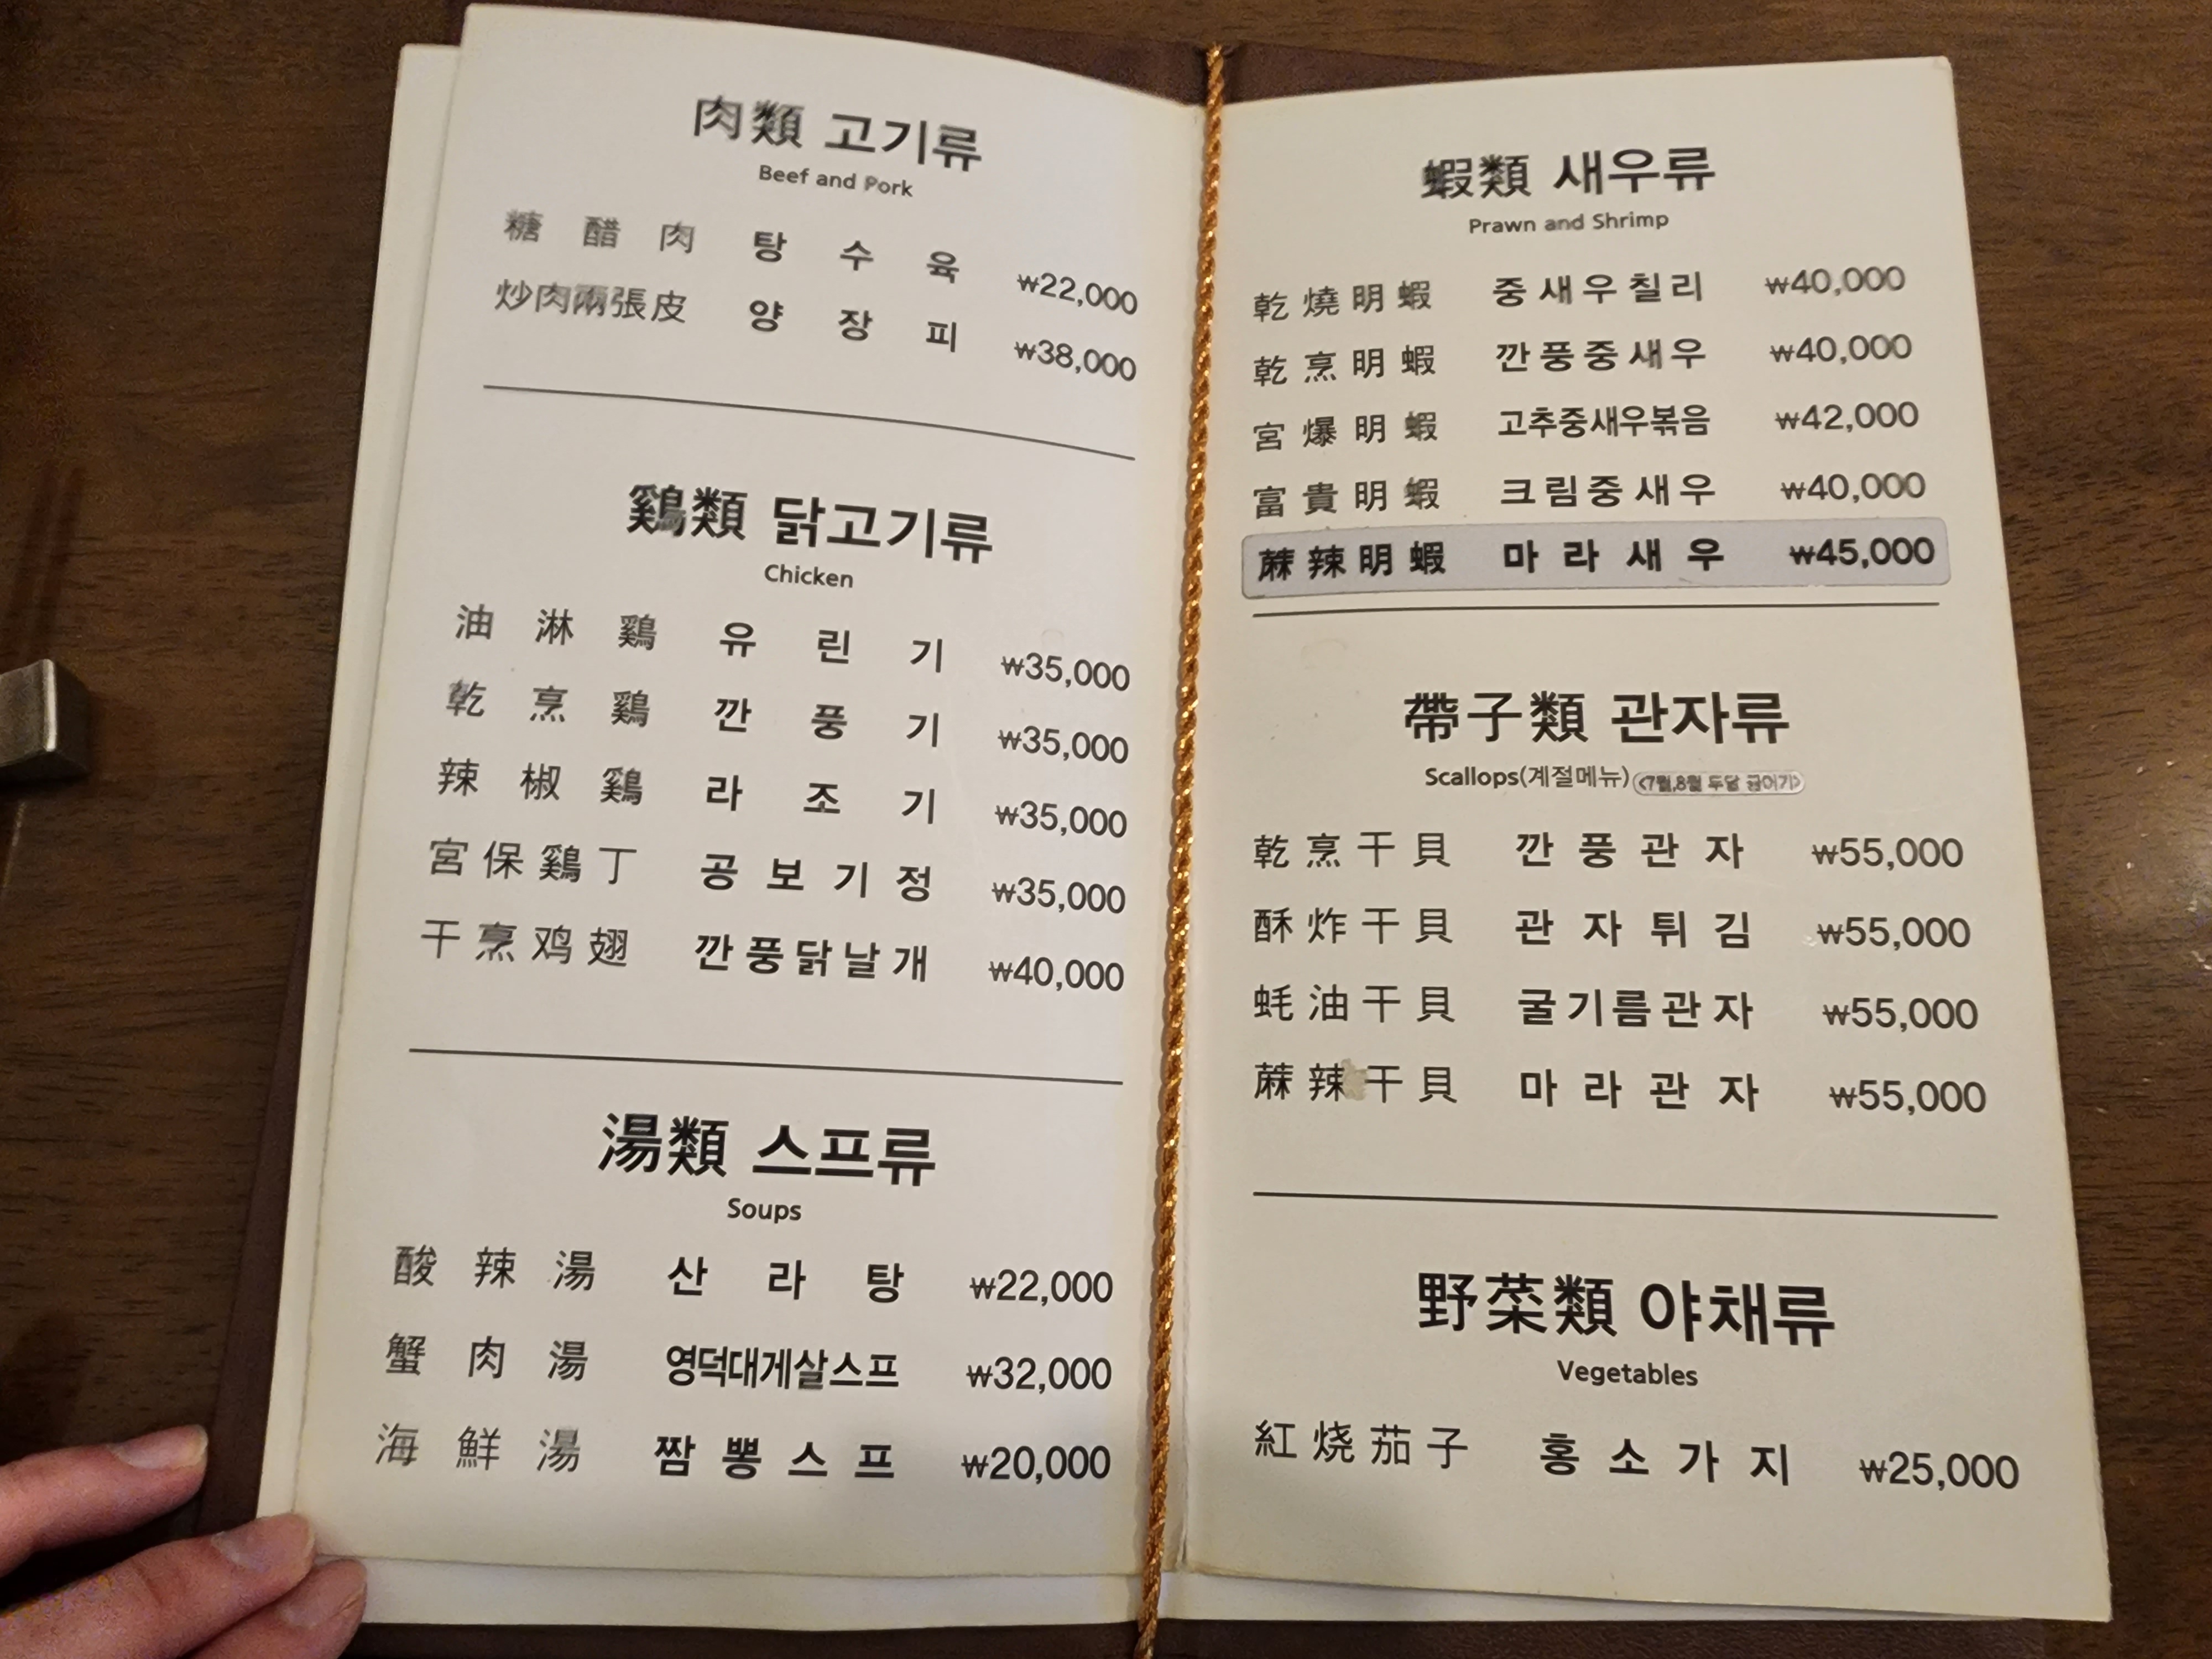 肉類 고기류
Beef and Pork
糖醋肉 탕수육 ₩22,000
炒肉兩張皮 양장피 ₩38,000
鷄類 닭고기류
Chicken
油淋鷄 유린기 ₩35,000
乾烹鷄 깐풍기 ₩35,000
辣椒鷄 라조기 ₩35,000
宮保鷄丁 공보기정 ₩35,000
干烹鸡翅 깐풍닭날개 ₩40,000
湯類 스프류
Soups
酸辣湯 산라탕 ₩22,000
蟹肉湯 영덕대게살스프 ₩32,000
海鮮湯 짬뽕스프 ₩20,000
蝦類 새우류
Prawn and Shrimp
乾燒明蝦 중새우칠리 ₩40,000
乾烹明蝦 깐풍중새우 ₩40,000
宮爆明蝦 고추중새우볶음 ₩42,000
富貴明蝦 크림중새우 ₩40,000
蔴辣明蝦 마라새우 ₩45,000
帶子類 관자류
Scallops(계절메뉴) <7월,8월 두달 끊어기>
乾烹干貝 깐풍관자 ₩55,000
酥炸干貝 관자튀김 ₩55,000
蚝油干貝 굴기름관자 ₩55,000
蔴辣干貝 마라관자 ₩55,000
野菜類 야채류
Vegetables
紅烧茄子 홍소가지 ₩25,000